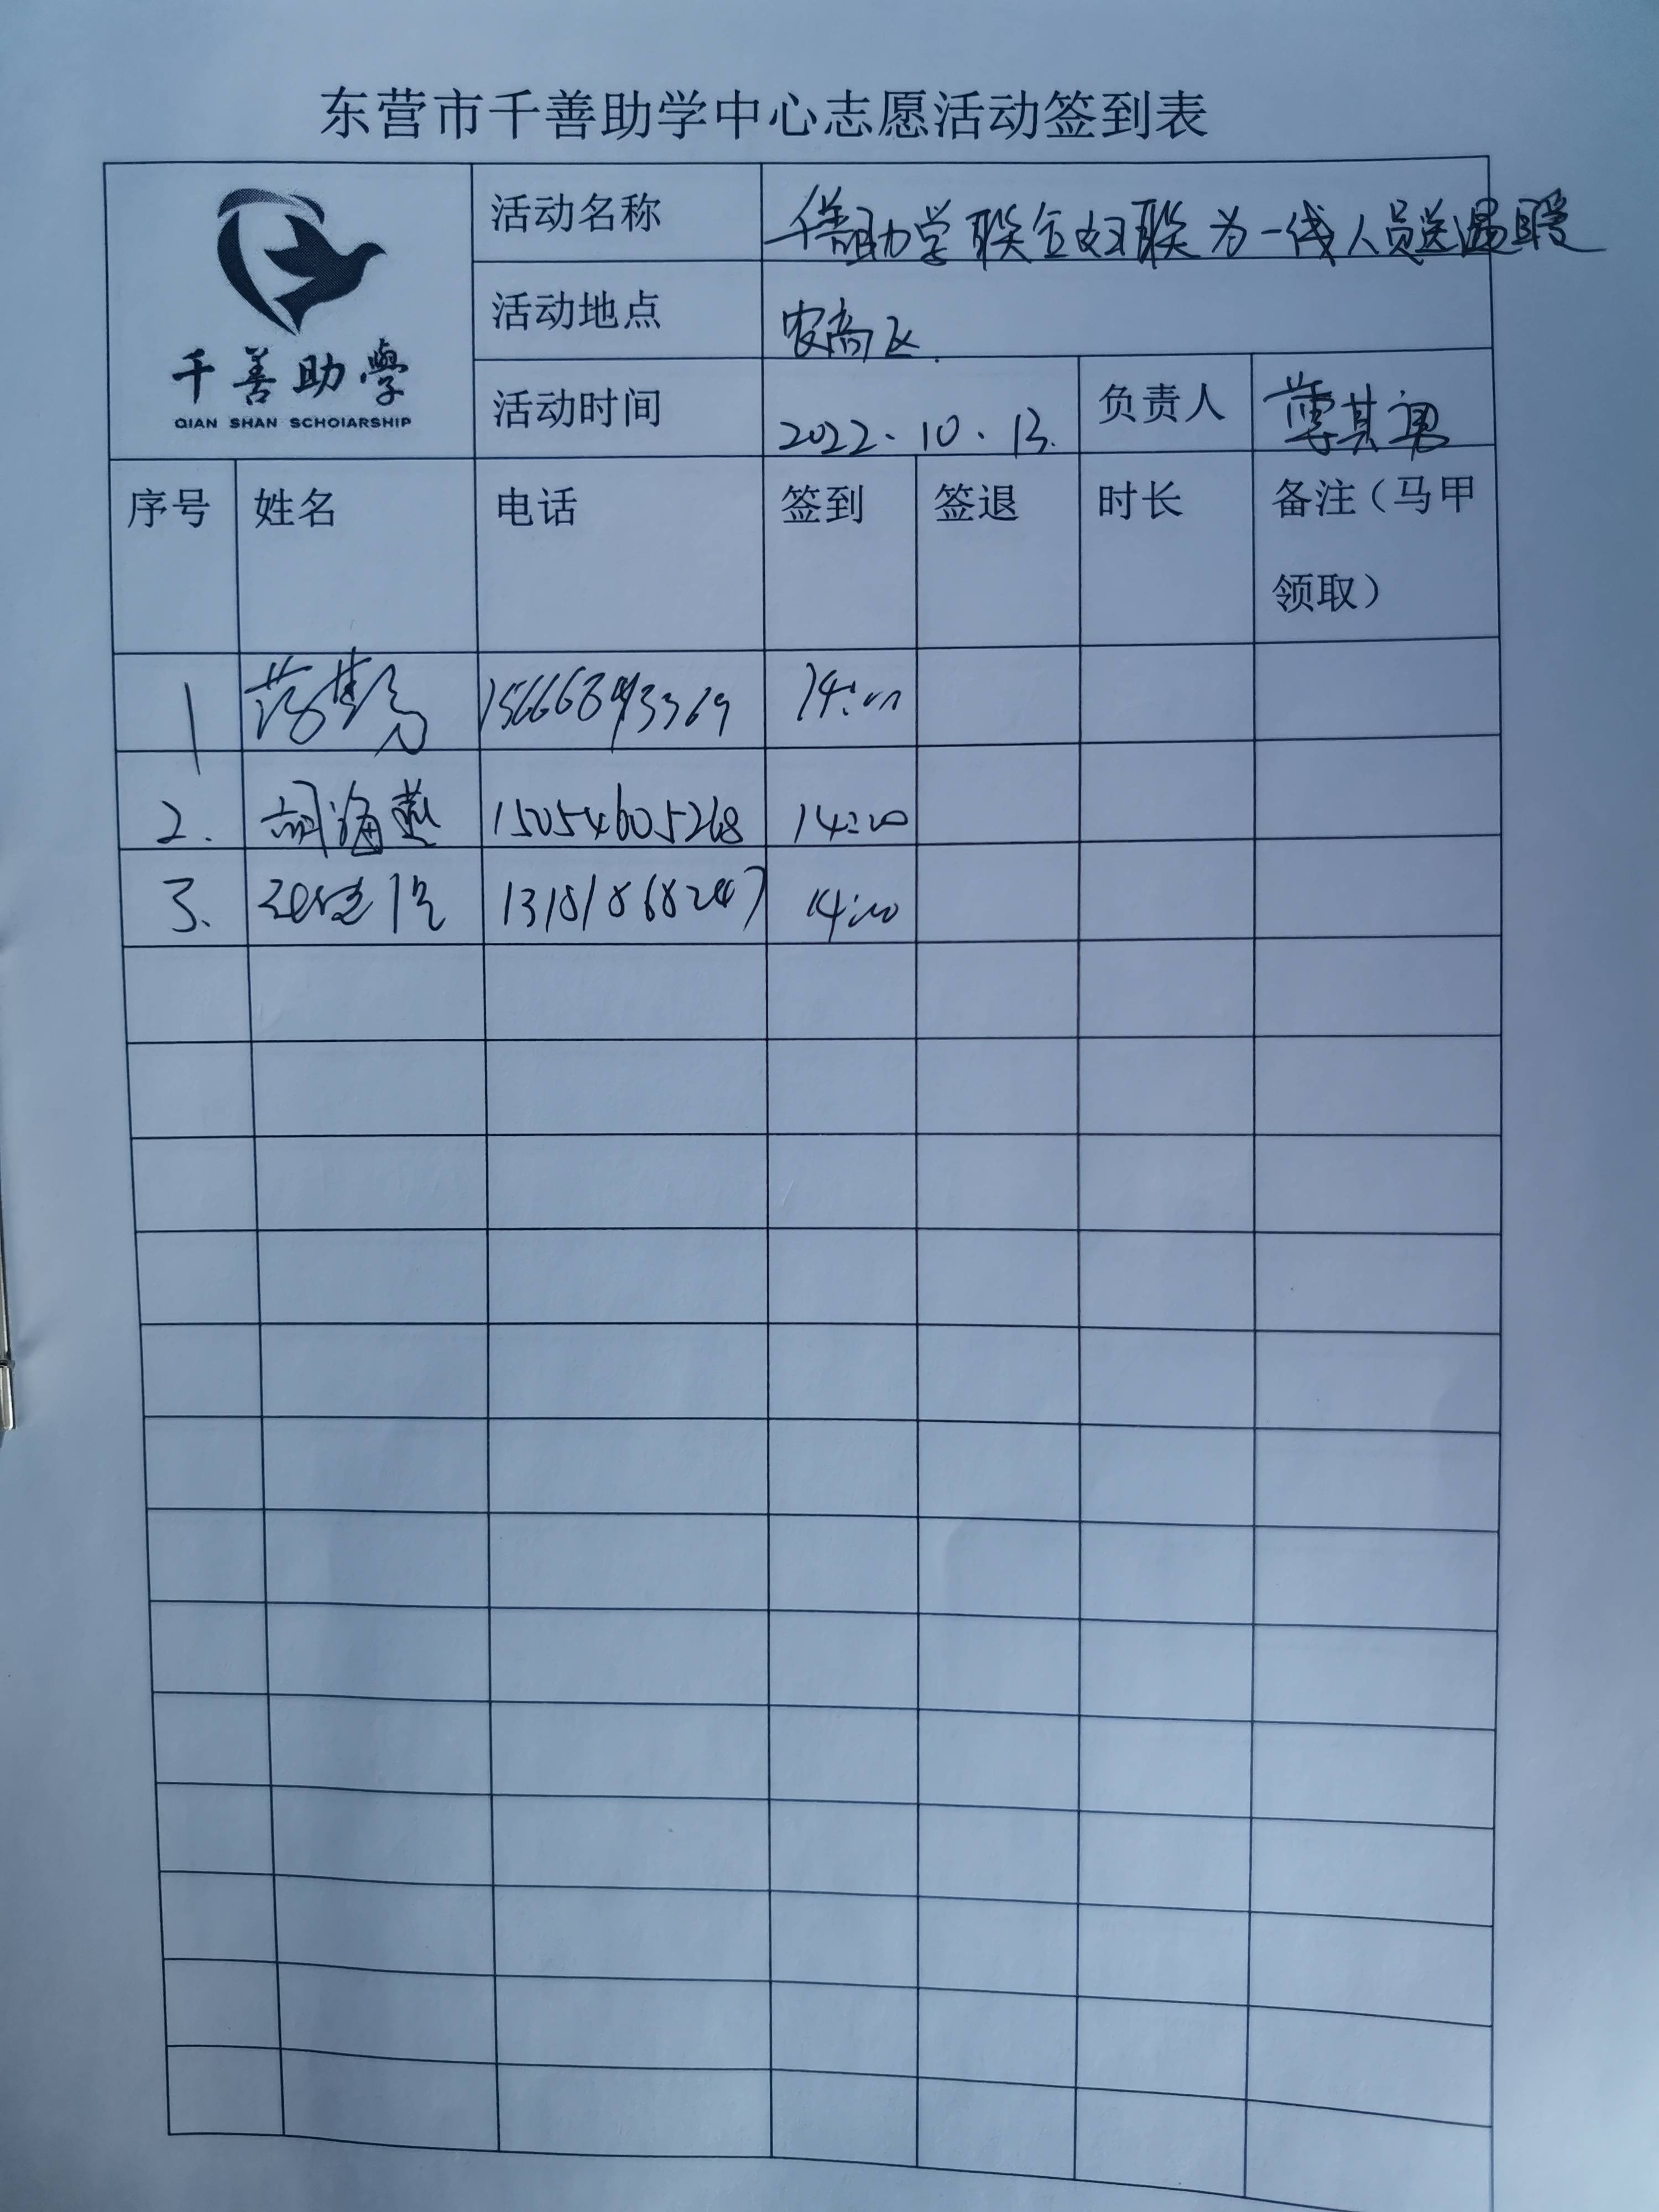 东营市千善助学中心志愿活动签到表
千善助學
QIAN SHAN SCHOIARSHIP
活动名称 千善助学联合妇联为一线人员送温暖
活动地点 农高区.
活动时间 2022.10.13. 负责人 其勇
序号 姓名 电话 签到 签退 时长 备注（马甲
领取）
1 14:00
2. 胡海燕 15054605268 14:00
3. 13181868247 14:00